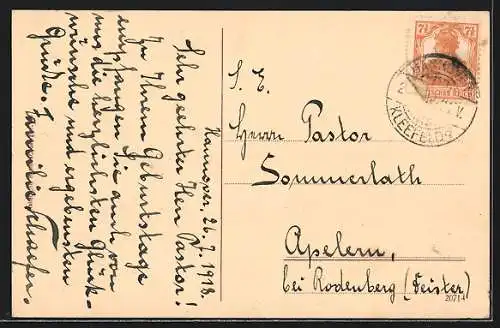 Hannover, 26.7.1918.
Sehr geehrter Herr Pastor!
Zu Ihrem Geburtstage
empfangen Sie auch von
uns die herzlichsten Glück-
wünsche und ergebensten
Grüße. Familie Schaefer.
7½ 7½
KLEEFELD
S. E.
Herrn Pastor
Sommerlath
Apelern,
bei Rodenberg (Deister)
20714